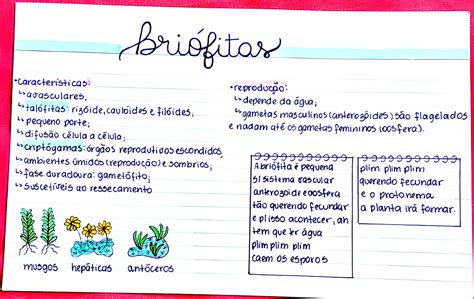 briófitas
•características:
↳avasculares;
↳talófitas: rizóide, caulóides e filóides;
↳pequeno porte;
↳difusão célula a célula;
↳criptógamas: órgãos reprodutivos escondidos;
↳ambientes úmidos (reprodução) e sombrios;
↳fase duradoura: gametófito;
↳suscetíveis ao ressecamento
•reprodução:
↳depende da água;
↳gametas masculinos (anterozóides) são flagelados
e nadam até os gametas femininos (oosfera).
A briófita é pequena
s/ sistema vascular
anterozoide e oosfera
tão querendo fecundar
e p/ isso acontecer, ah
tem que ter água
plim plim plim
caem os esporos
plim plim plim
querendo fecundar
e o protonema
a planta irá formar.
musgos hepáticas antóceros